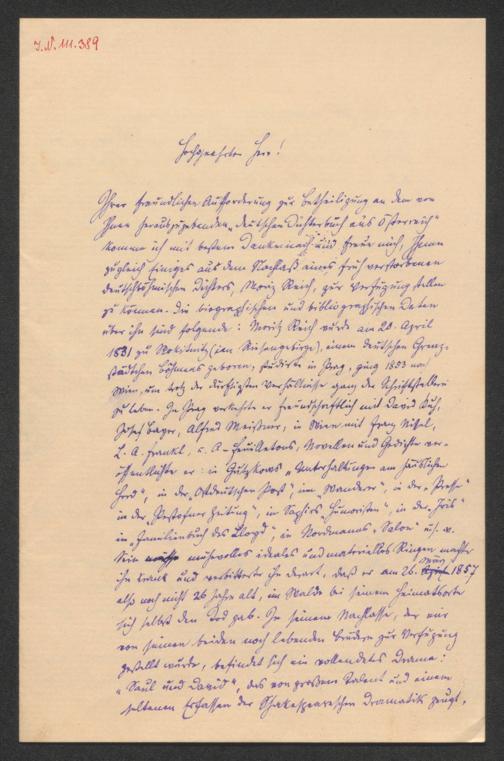 J.N. III.389
Hochgeehrter Herr!
Ihrer freundlichen Aufforderung zur Betheiligung an dem von
Ihnen herauszugebenden „deutschen Dichterbuch aus Österreich“
komme ich mit bestem Danke nach und freue mich, Ihnen
zugleich Einiges aus dem Nachlaß eines früh verstorbenen
deutschböhmischen Dichters, Moriz Reich, zur Verfügung stellen
zu können. Die biographischen und bibliographischen Daten
über ihn sind folgende: Moritz Reich wurde am 20. April
1831 zu Rokitnitz (im Riesengebirge), einem deutschen Grenz-
städtchen Böhmens geboren, studirte in Prag, ging 1853 nach
Wien, um trotz der dürftigsten Verhältnisse ganz der Schriftstellerei
zu leben. In Prag verkehrte er freundschaftlich mit David Kuh,
Josef Bayer, Alfred Meißner, in Wien mit Franz Nissel,
L. A. Frankl, u. A. – Feuilletons, Novellen und Gedichte ver-
öffentlichte er: in Gutzkows „Unterhaltungen am häuslichen
Herd“, in der „Ostdeutschen Post“, im „Wanderer“, in der „Presse“
in der „Pestofner Zeitung“, in Saphirs „Humoristen“, in der „Iris“
im „Familienbuch des Lloyd“, in Nordmanns „Salon“ u. s. w.
Sein mühevolles ideales und materielles Ringen machte
ihn krank und verbitterte ihn derart, daß er am 26. März 1857
also noch nicht 26 Jahre alt, im Walde bei seinem Heimatsorte
sich selbst den Tod gab. In seinem Nachlasse, der mir
von seinen beiden noch lebenden Brüdern zur Verfügung
gestellt wurde, befindet sich ein vollendetes Drama:
„Saul und David“, das von großem Talent und einem
seltenen Erfassen der Shakespeareschen Dramatik zeugt,